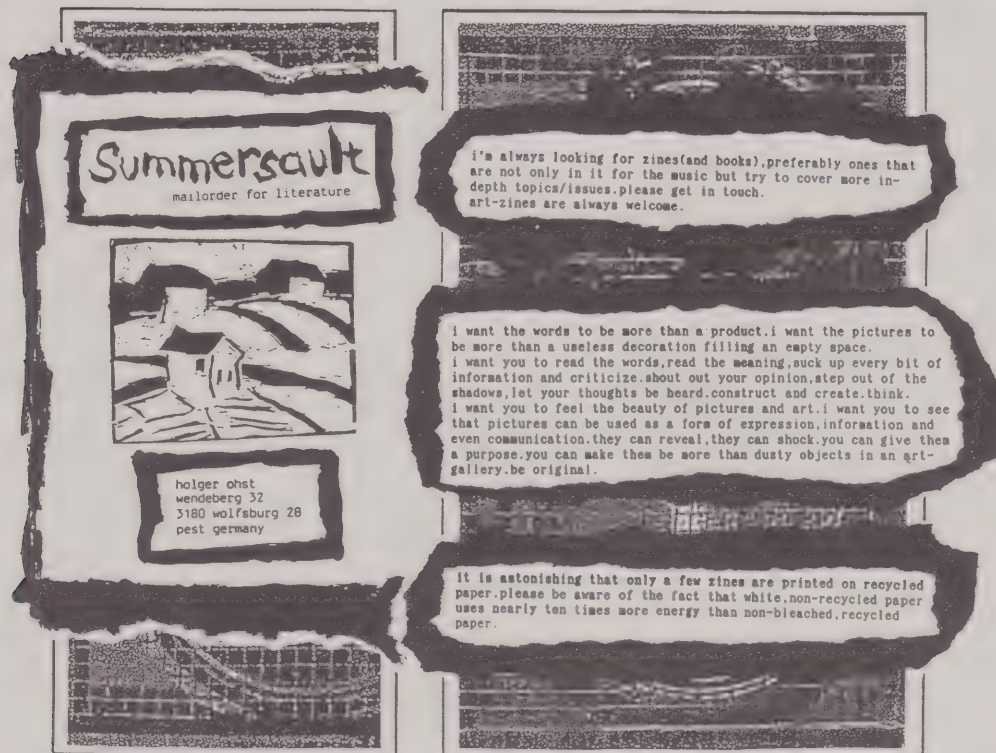 Summersault
mailorder for literature
holger ohst
wendeberg 32
3180 wolfsburg 28
pest germany
i'm always looking for zines(and books),preferably ones that
are not only in it for the music but try to cover more in-
depth topics/issues.please get in touch.
art-zines are always welcome.
i want the words to be more than a product.i want the pictures to
be more than a useless decoration filling an empty space.
i want you to read the words,read the meaning,suck up every bit of
information and criticize.shout out your opinion,step out of the
shadows,let your thoughts be heard.construct and create.think.
i want you to feel the beauty of pictures and art.i want you to see
that pictures can be used as a form of expression,information and
even communication.they can reveal,they can shock.you can give them
a purpose.you can make them be more than dusty objects in an art-
gallery.be original.
it is astonishing that only a few zines are printed on recycled
paper.please be aware of the fact that white,non-recycled paper
uses nearly ten times more energy than non-bleached,recycled
paper.